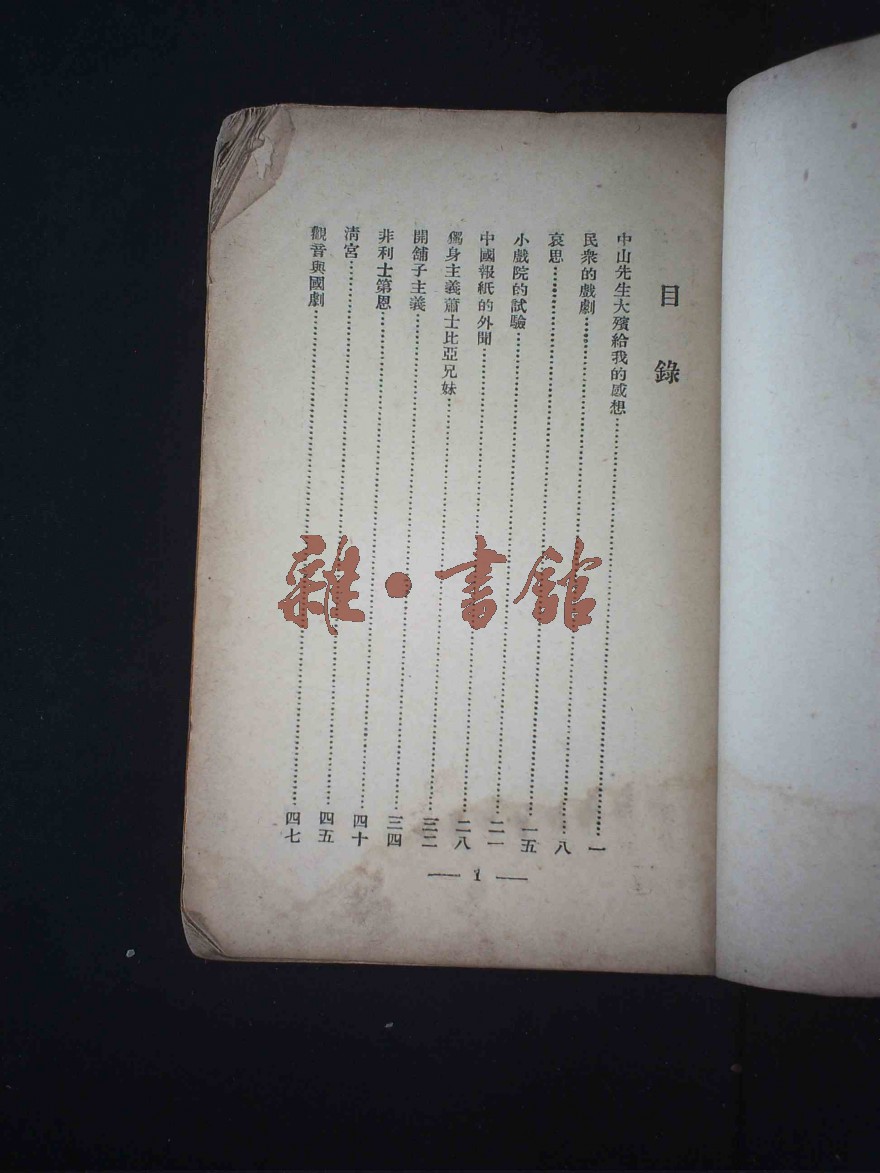 目錄
中山先生大殯給我的感想……一
民衆的戲劇……八
哀思……一五
小戲院的試驗……二一
中國報紙的外聞……二八
獨身主義蕭士比亞兄妹……三二
開舖子主義……三四
非利士第恩……四十
清宮……四五
觀音與國劇……四七
— 1 —
雜·書館